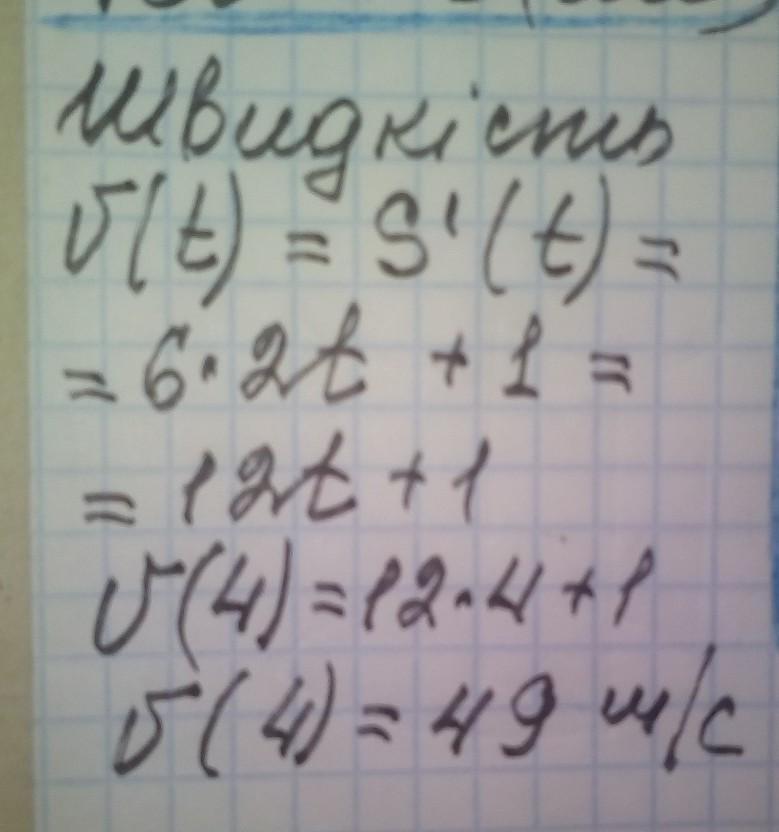 Швидкість
v(t) = S'(t) =
= 6·2t + 1 =
= 12t + 1
v(4) = 12·4 + 1
v(4) = 49 м/с